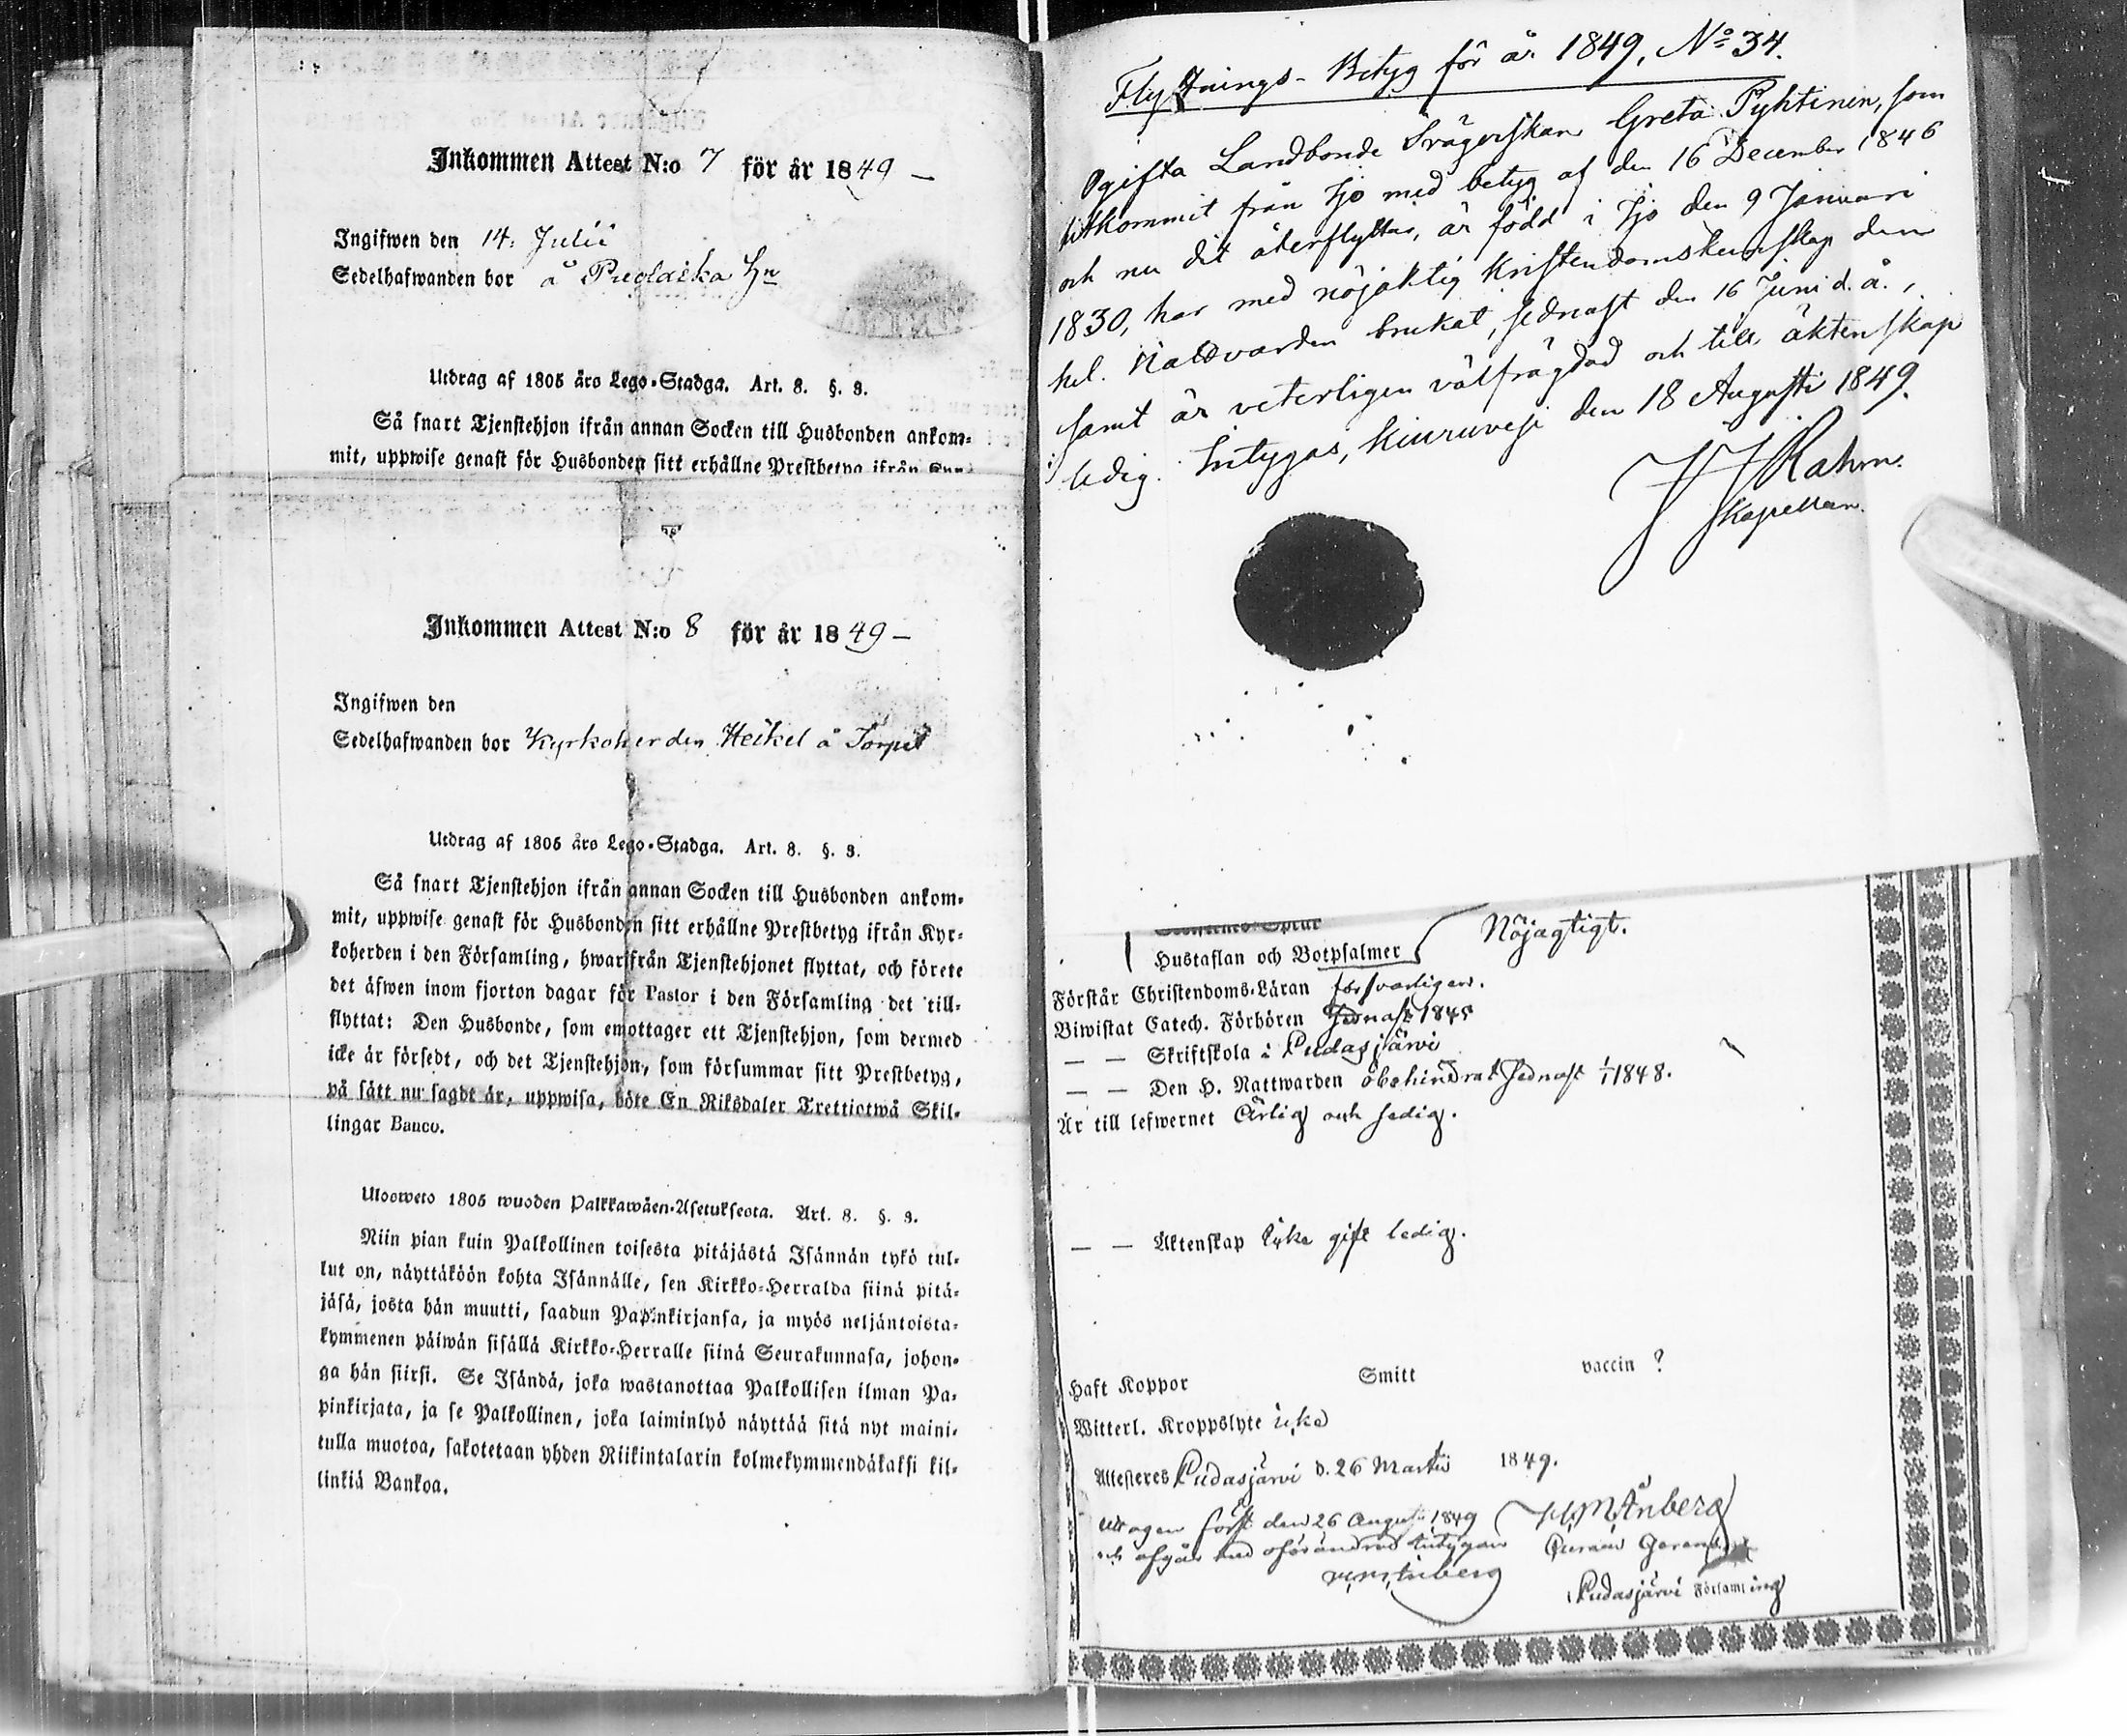 Inkommen Attest N:o 7 för år 1849 –
Ingifwen den 14. Julii
Sedelhafwanden bor å
Utdrag af 1805 års Lego-Stadga. Art. 8. §. 3.
Så snart Tjenstehjon ifrån annan Socken till Husbonden ankom-
mit, uppwise genast för Husbonden sitt erhållne Prestbetyg ifrån
Inkommen Attest N:o 8 för år 1849 –
Ingifwen den
Sedelhafwanden bor Kyrkoherden Heikel å
Utdrag af 1805 års Lego-Stadga. Art. 8. §. 3.
Så snart Tjenstehjon ifrån annan Socken till Husbonden ankom-
mit, uppwise genast för Husbonden sitt erhållne Prestbetyg ifrån Kyr-
koherden i den Församling, hwarifrån Tjenstehjonet flyttat, och förete
det äfwen inom fjorton dagar för Pastor i den Församling det till-
flyttat: Den Husbonde, som emottager ett Tjenstehjon, som dermed
icke är försedt, och det Tjenstehjon, som försummar sitt Prestbetyg,
på sätt nu sagdt är, uppwisa, böte En Riksdaler Trettiotwå Skil-
lingar Banco.
Ulosweto 1805 wuoden Palkkawäen-Asetuksesta. Art. 8. §. 3.
Niin pian kuin Palkollinen toisesta pitäjästä Isännän tykö tul-
lut on, näyttäköön kohta Isännälle, sen Kirkko-Herralda siinä pitä-
jäsä, josta hän muutti, saadun Papinkirjansa, ja myös neljäntoista-
kymmenen päiwän sisällä Kirkko-Herralle siinä Seurakunnasa, johon-
ga hän siirsi. Se Isändä, joka wastanottaa Palkollisen ilman Pa-
pinkirjata, ja se Palkollinen, joka laiminlyö näyttää sitä nyt maini-
tulla muotoa, sakotetaan yhden Riikintalarin kolmekymmendäkaksi kil-
linkiä Bankoa.
Flyttnings-Betyg för år 1849, No 34.
Ogifta Landbonde Svägerskan Greta Pyhtinen, som
hitkommit från Ijo med betyg af den 16 December 1846
och nu dit återflyttar, är född i Ijo den 9 Januari
1830, har med nöjaktig Kristendomskunskap den
hel. Nattvarden brukat, sednast den 16 Juni d. å.,
samt är veterligen välfrägdad och till äktenskap
ledig. Intygas, Kiuruvesi den 18 Augusti 1849.
Kapellan.
Hustaflan och Botpsalmer Nöjagtigt.
Förstår Christendoms-Läran försvarligen.
Biwistat Catech. Förhören Sednast 1848
— — Skriftskola i Pudasjärvi
— — Den H. Nattwarden obehindrat Sednast 1/1 1848.
Är till lefwernet Ärlig och sedig.
— — Äktenskap icke gift ledig.
Haft Koppor Smitt vaccin ?
Witterl. Kroppslyte icke
Attesteres Pudasjärvi d. 26 Martii 1849.
Uttagen först den 26 Augusti 1849
och afgår med oförändrad
Pudasjärvi Församling